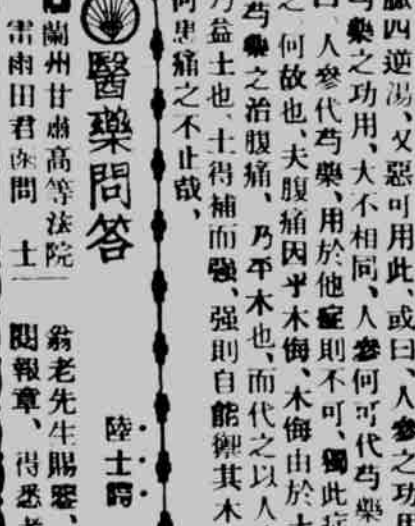 四逆湯、又惡可用此、或曰、人參之功用
藥之功用、大不相同、人參何可代芍藥
曰、人參代芍藥、用於他症則不可、獨此
之、何故也、夫腹痛因乎木侮、木侮由於土
芍藥之治腹痛、乃平木也、而代之以人
乃益土也、土得補而強、強則自能禦其木
何患痛之不止哉、
醫藥問答
陸士諤
蘭州甘肅高等法院
雷雨田君問 士
翁老先生賜鑒、
閱報章、得悉